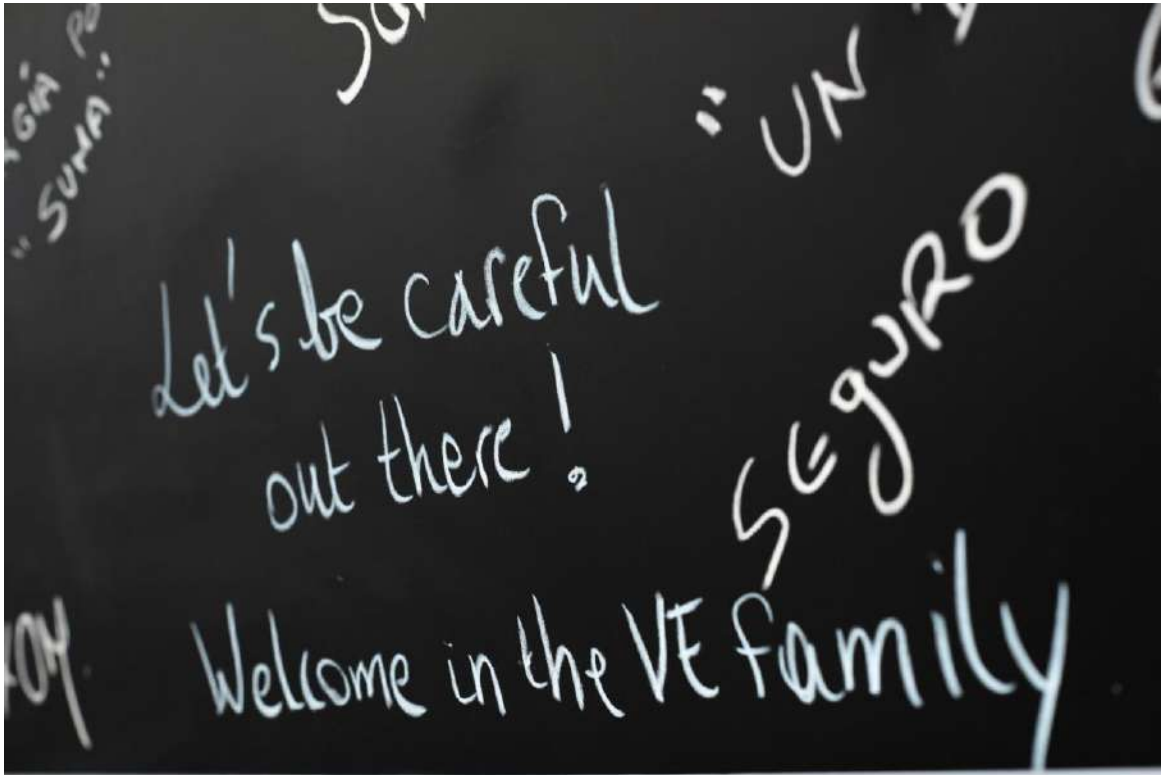 "SUMA"
"UN
SEgURO
Let's be careful
out there!
Welcome in the VE family